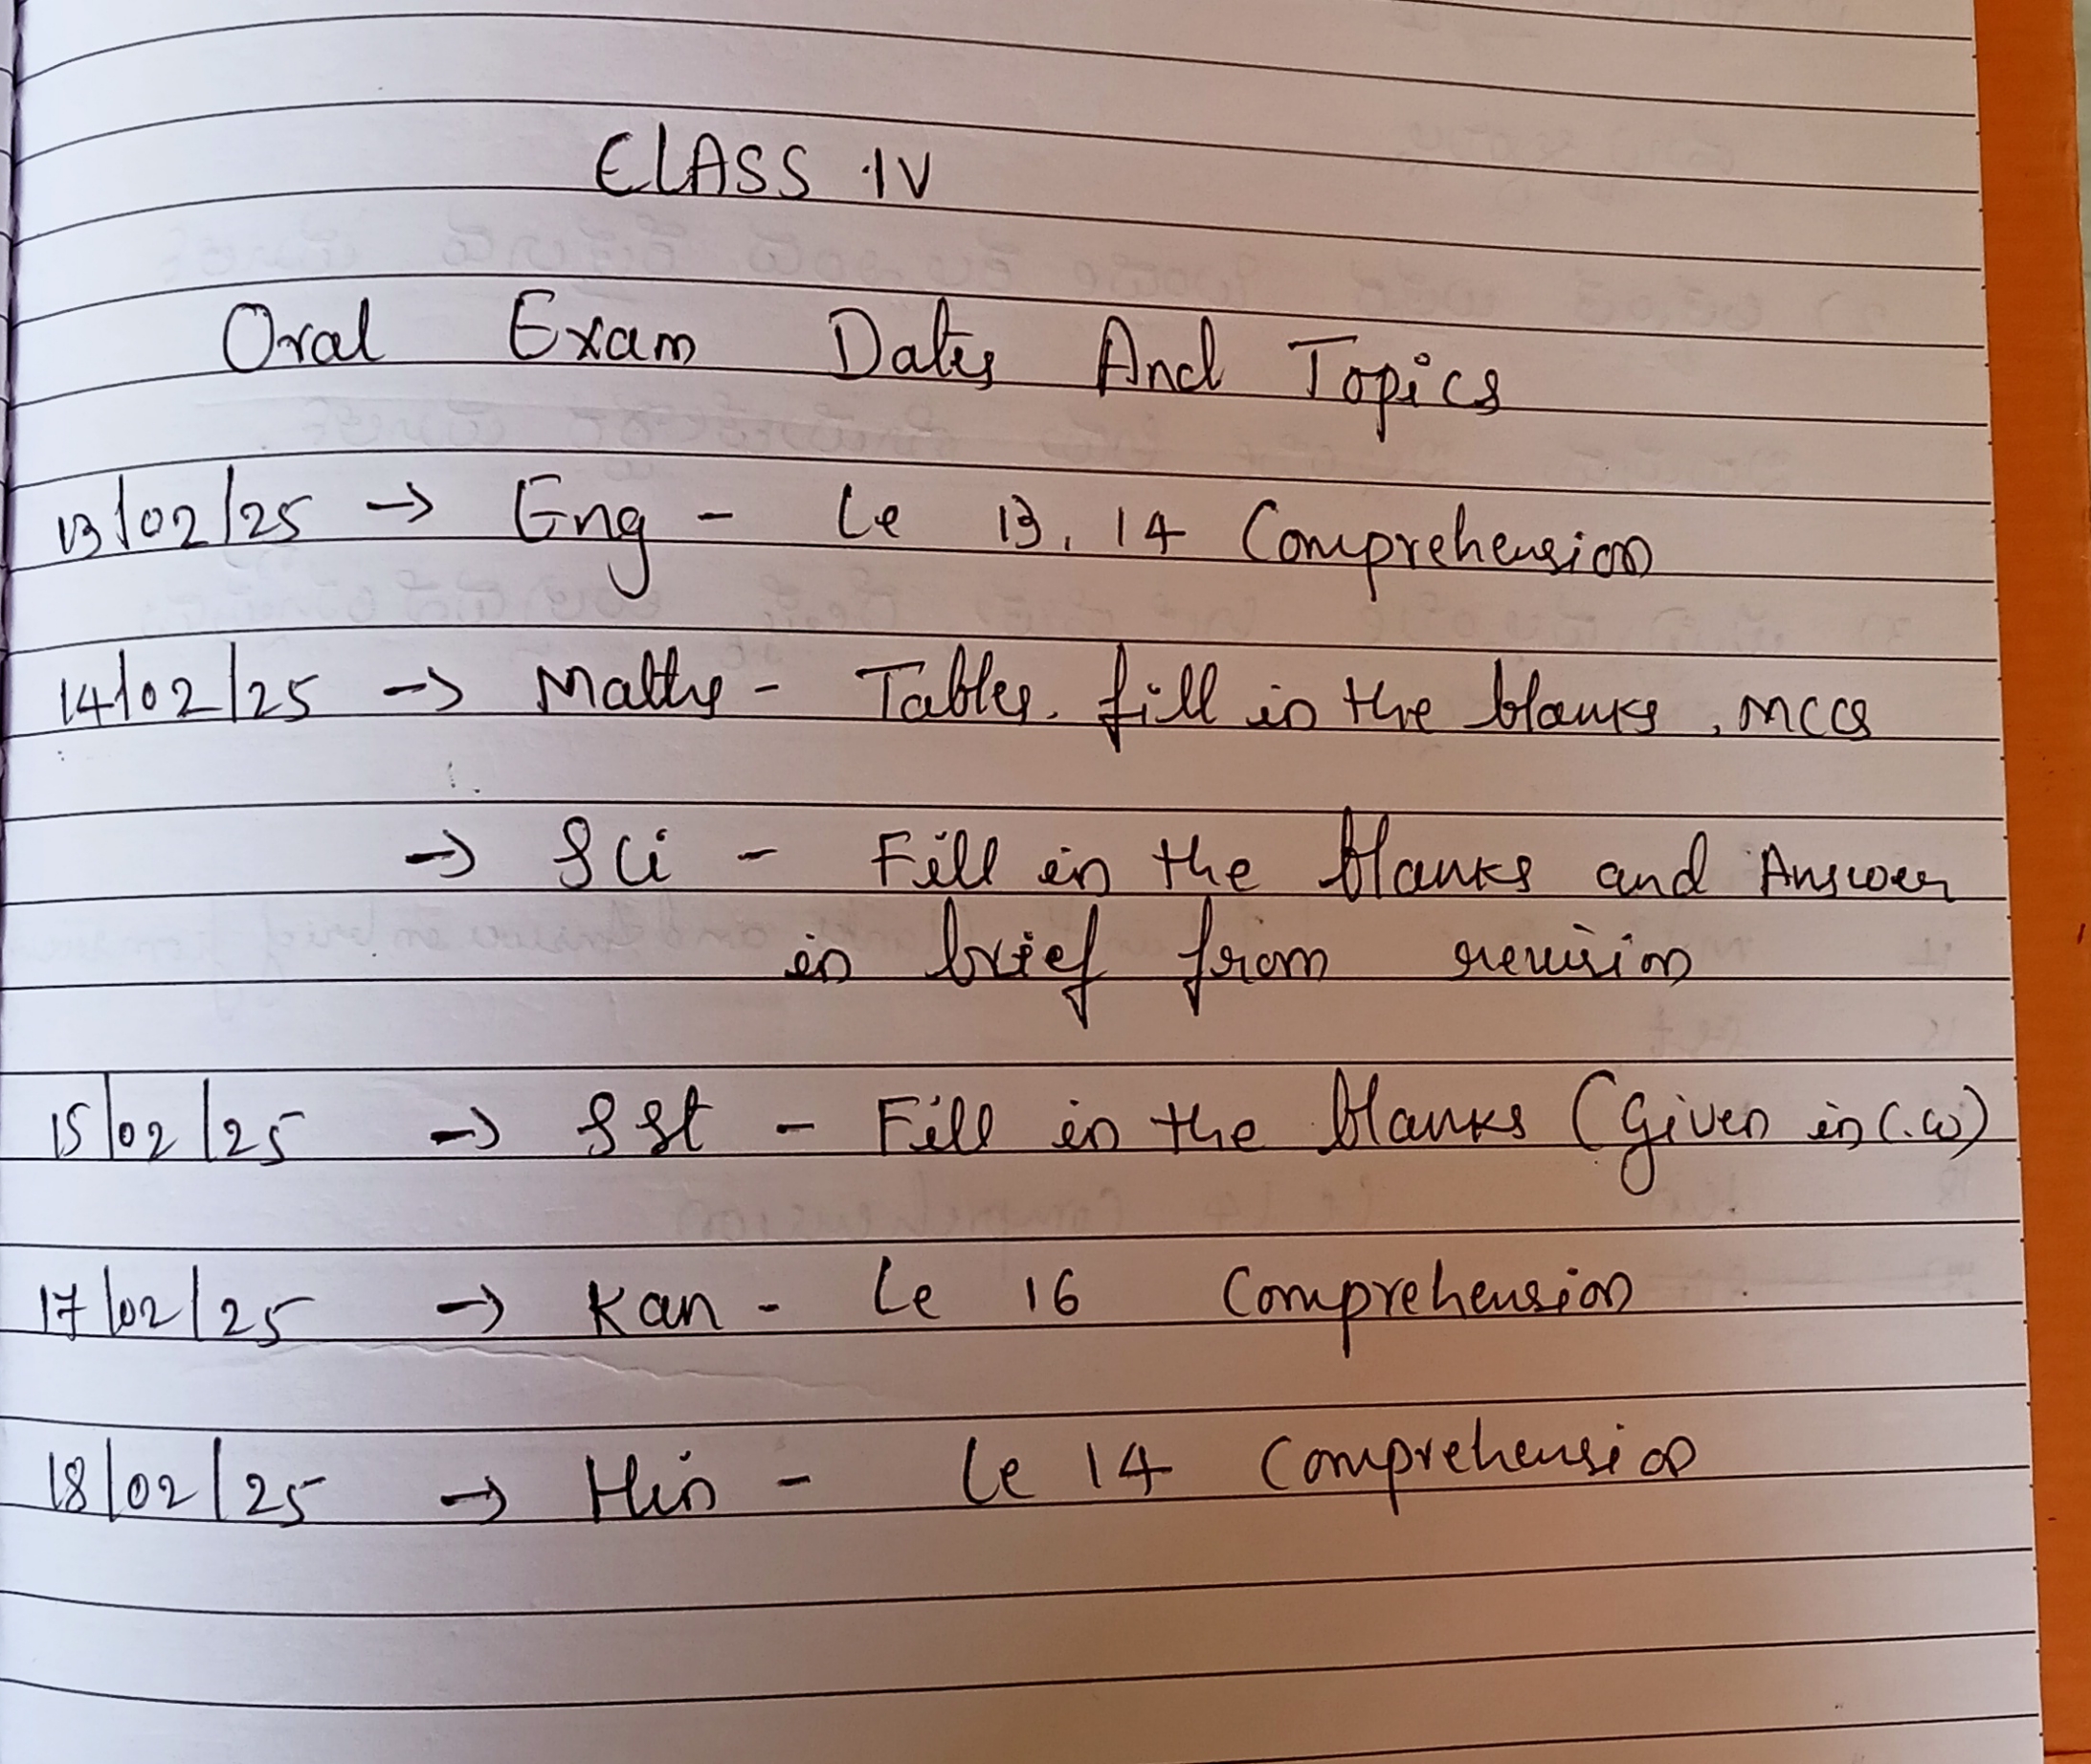 CLASS IV
Oral Exam Dates And Topics
13/02/25 → Eng - Le 13, 14 Comprehension
14/02/25 → Maths - Tables, fill in the blanks, MCQs
→ Sci - Fill in the blanks and Answer
in brief from revision
15/02/25 → SSt - Fill in the blanks (Given in C.W)
17/02/25 → Kan - Le 16 Comprehension
18/02/25 → Hin - Le 14 Comprehension